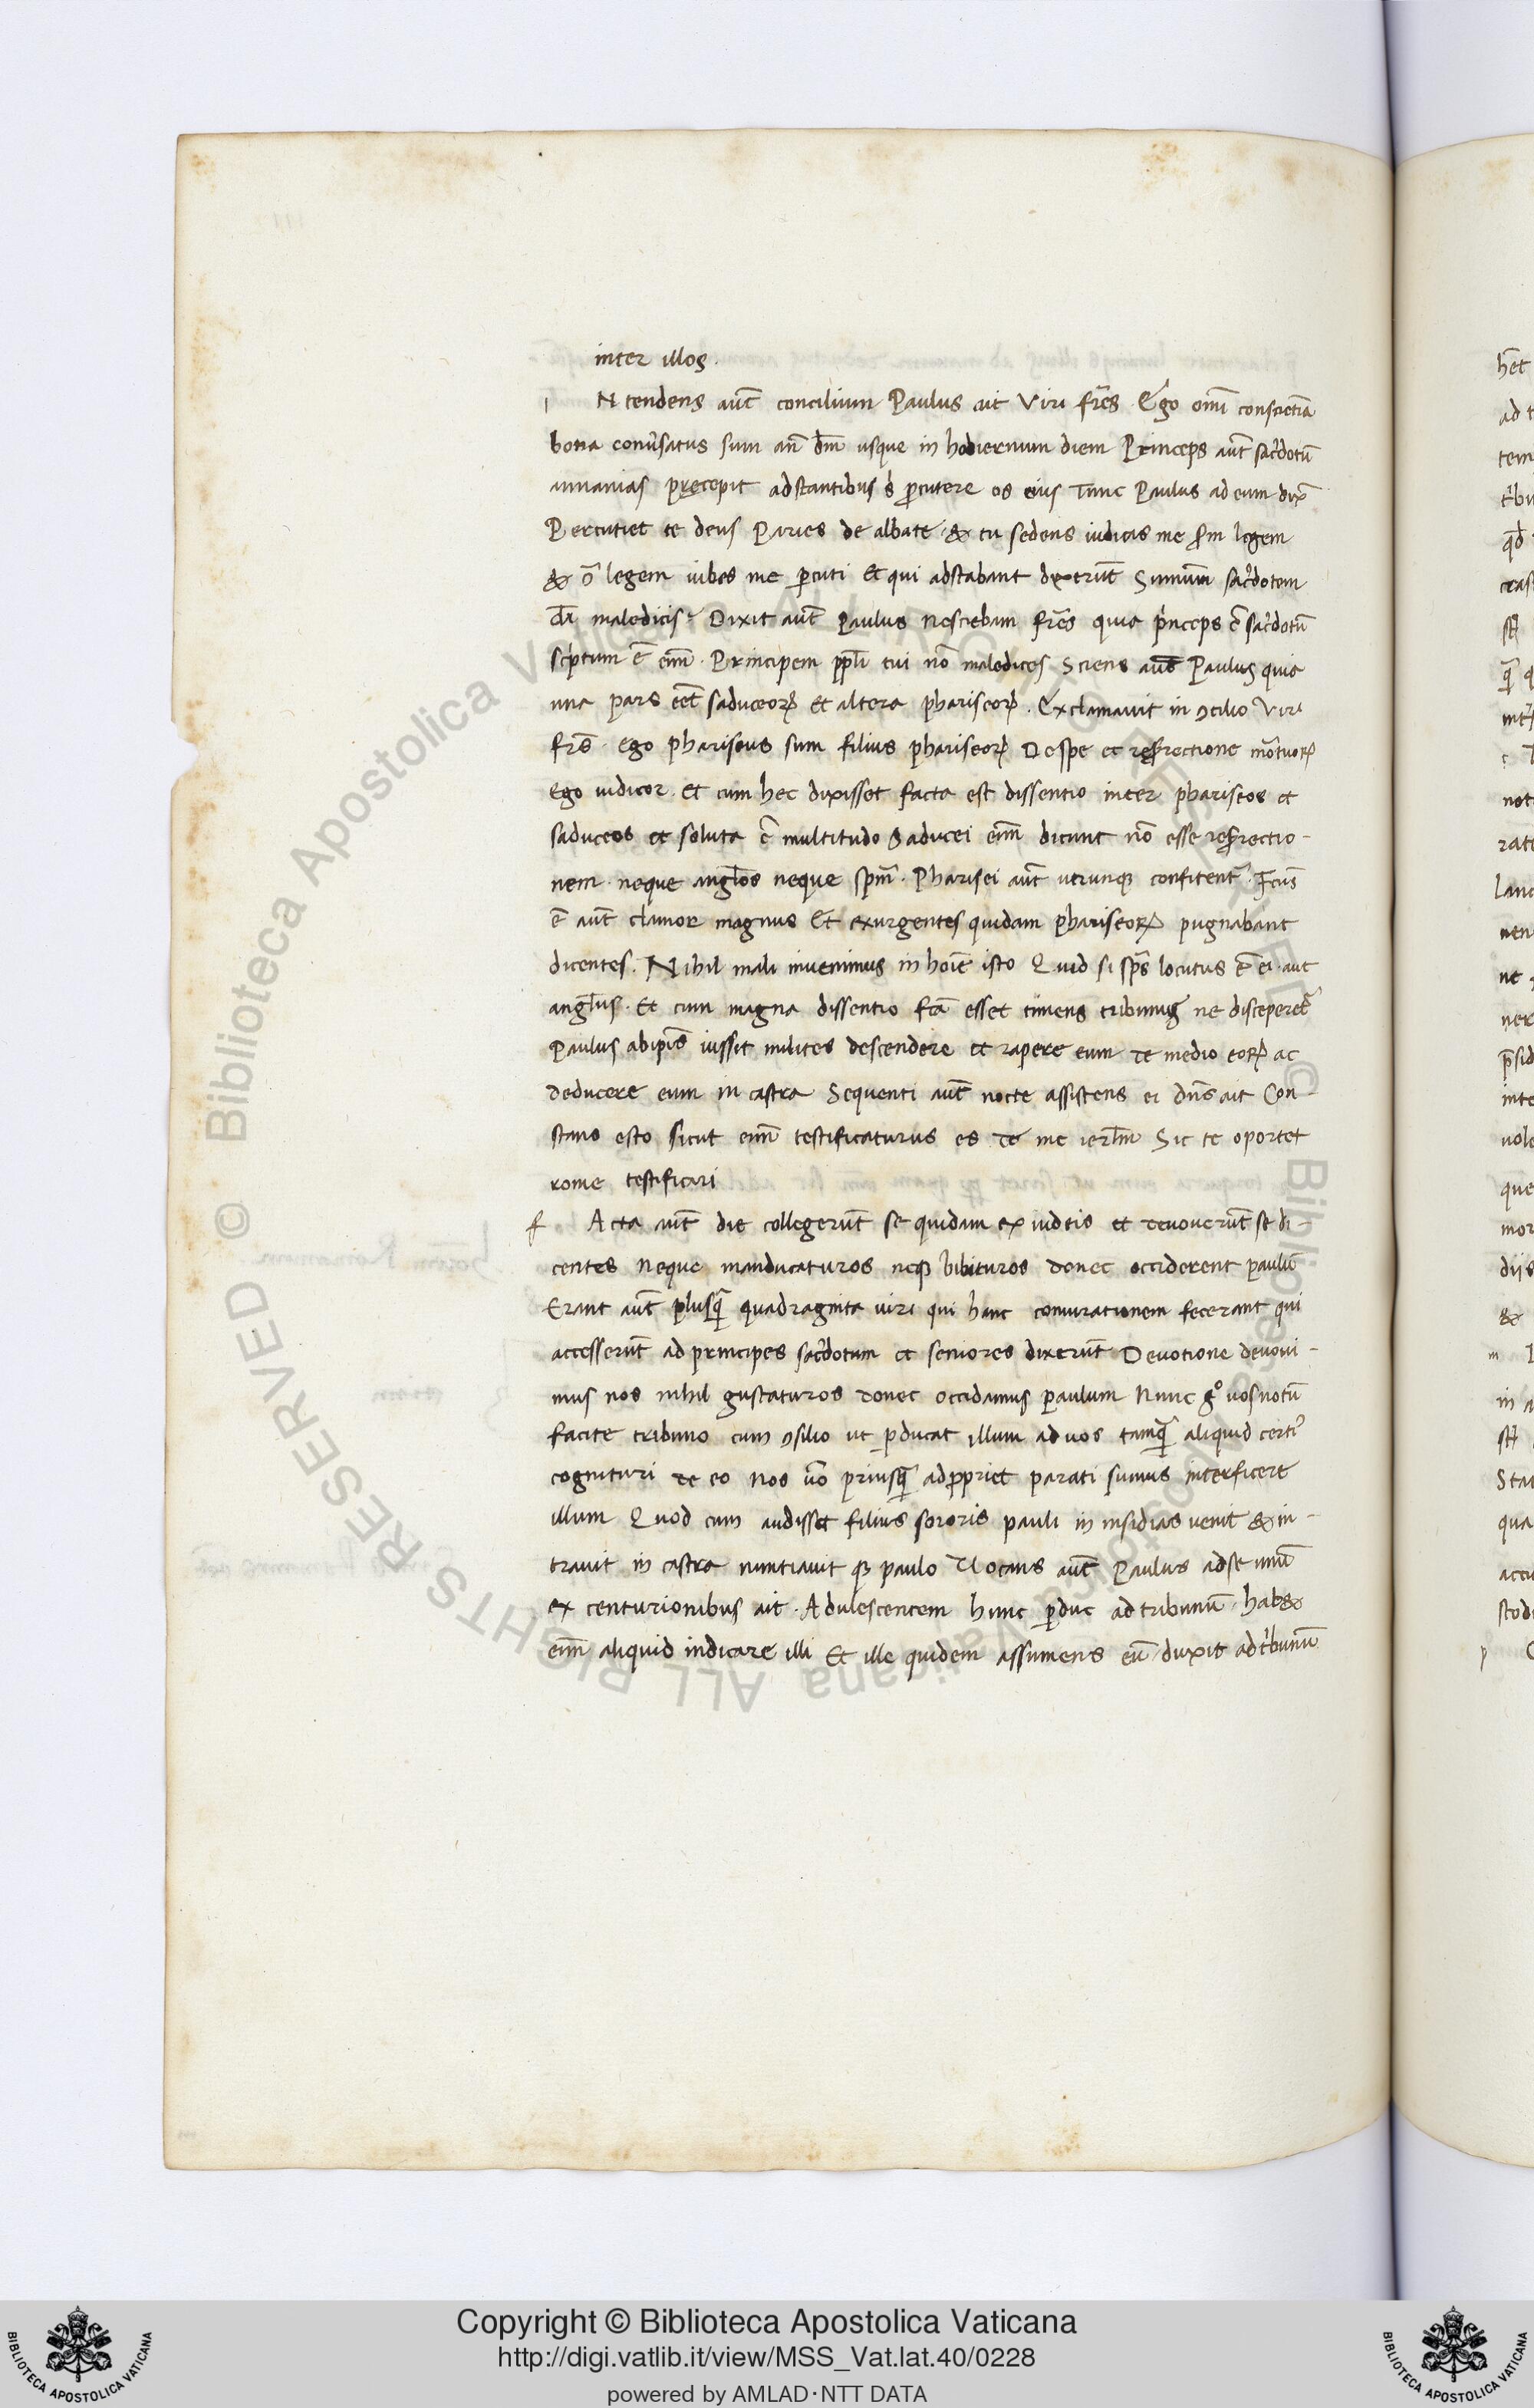 inter illos.
I Ntendens aut̄ concilium Paulus ait Viri fr̄es. Ego om̄i consciētia
bona conu̓satus sum an̄ dm̄ usque in hodiernum diem Princeps aut̄ sac̓dotū
annanias precepit adstantibus s̓ ꝑcutere os eius Tunc Paulus ad eum dix̄
Percutiet te deus Paries de albate. & tu sedens iudicas me sm̄ legem
& legem iubes me ꝑcuti Et qui adstabant dixerūt Summum sac̓dotem
maledicis? Dixit aut̄ Paulus Nesciebam fr̄es quia p̓nceps ē sac̓dotū
sc̓ptum ē eni̅m. Principem ppl̄i tui nō maledices Sciens aut̄ Paulus quia
una pars eēt saduceoꝝ et altera phariseoꝝ. Exclamavit in ꝯcilio Viri
fr̄s. Ego phariseus sum filius phariseoꝝ De spe et resurrectione
Ego iudicor. Et cum hec dixisset facta est dissentio inter phariseos et
saduceos et soluta ē multitudo Saducei eni̅m dicunt nō esse resurrectio-
nem. neque angl̄os neque spm̄. Pharisei aut̄ utrunqꝫ confitent̄. Fcus̄
ē aut̄ clamor magnus Et exurgentes quidam phariseoꝝ pugnabant
dicentes. Nihil mali invenimus in hoīe isto Quid si sp̄s locutus ē ei. aut
angl̄us. Et cum magna dissentio fc̄a esset timens tribunus ne disceperet̄
Paulus ab ip̄is iussit milites descendere et rapere eum de medio eoꝝ ac
deducere eum in castra Sequenti aut̄ nocte assistens ei dn̄s ait Con-
stans esto sicut eni̅m testificaturus es de me ierl̄m Sic te oportet
rome testificari
f Acta aut̄ die collegerūt se quidam ex iudeis et devoverūt se di-
centes Neque manducaturos neqꝫ bibituros donec occiderent paulū
Erant aut̄ plusq̄ quadraginta viri qui hanc coniurationem fecerant qui
accesserūt ad principes sac̓dotum et seniores dixerūt Devotione devovi-
mus nos nihil gustaturos donec occidamus paulum Nunc gͦ vos notū
facite tribuno cum ꝯsilio ut ꝓducat illum ad vos tamq̄ aliquid certi᾽
cognituri de eo Nos u̅o priusq̄ adpropriet parati sumus interficere
illum Quod cum audisset filius sororis pauli in insidias venit & in-
travit in castra nuntiavit qꝫ paulo Vocans aut̄ Paulus ad se unū
ex centurionibus ait. Adulescentem hunc ꝑduc ad tribunū. hab&
eni̅m aliquid indicare illi Et ille quidem assumens eū duxit ad t̓bunū
Copyright © Biblioteca Apostolica Vaticana
http://digi.vatlib.it/view/MSS_Vat.lat.40/0228
powered by AMLAD·NTT DATA